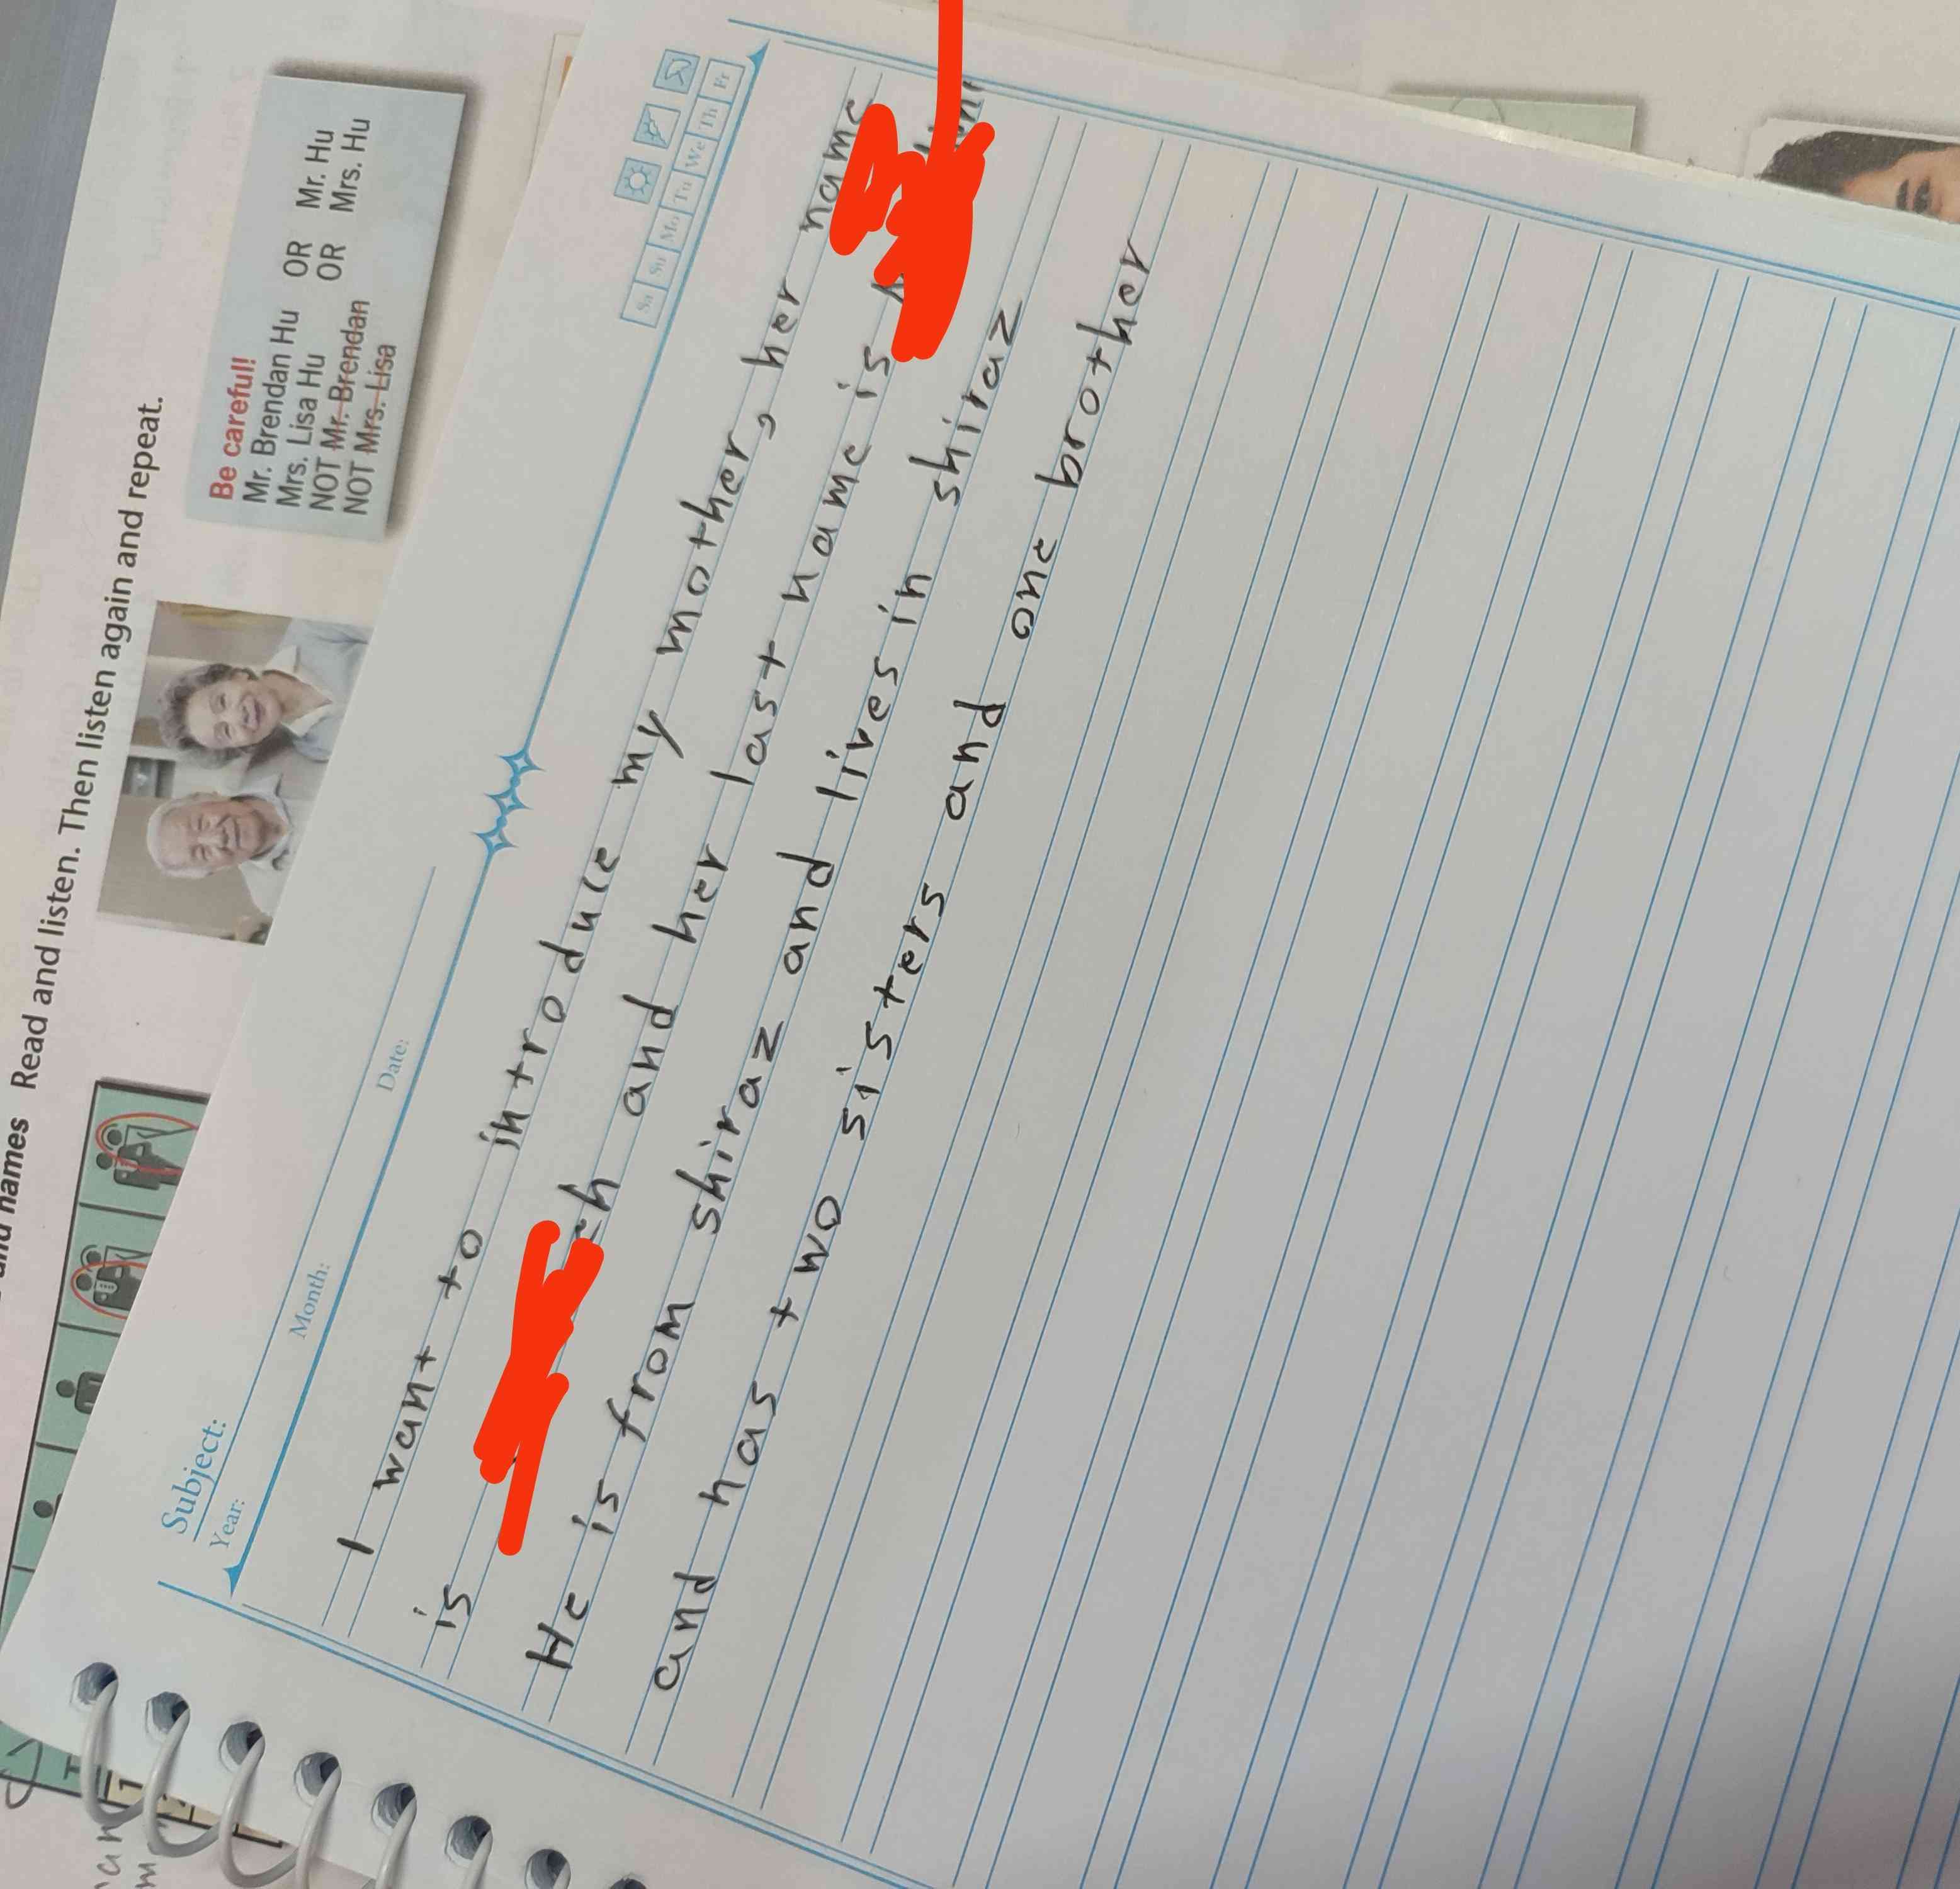 and names Read and listen. Then listen again and repeat.
Be careful!
Mr. Brendan Hu OR Mr. Hu
Mrs. Lisa Hu OR Mrs. Hu
NOT Mr. Brendan
NOT Mrs. Lisa
Subject:
Year: Month: Date:
Sa Su Mo Tu We Th Fr
I want to introduce my mother, her name
is and her last name is
He is from shiraz and lives in shiraz
and has two sisters and one brother